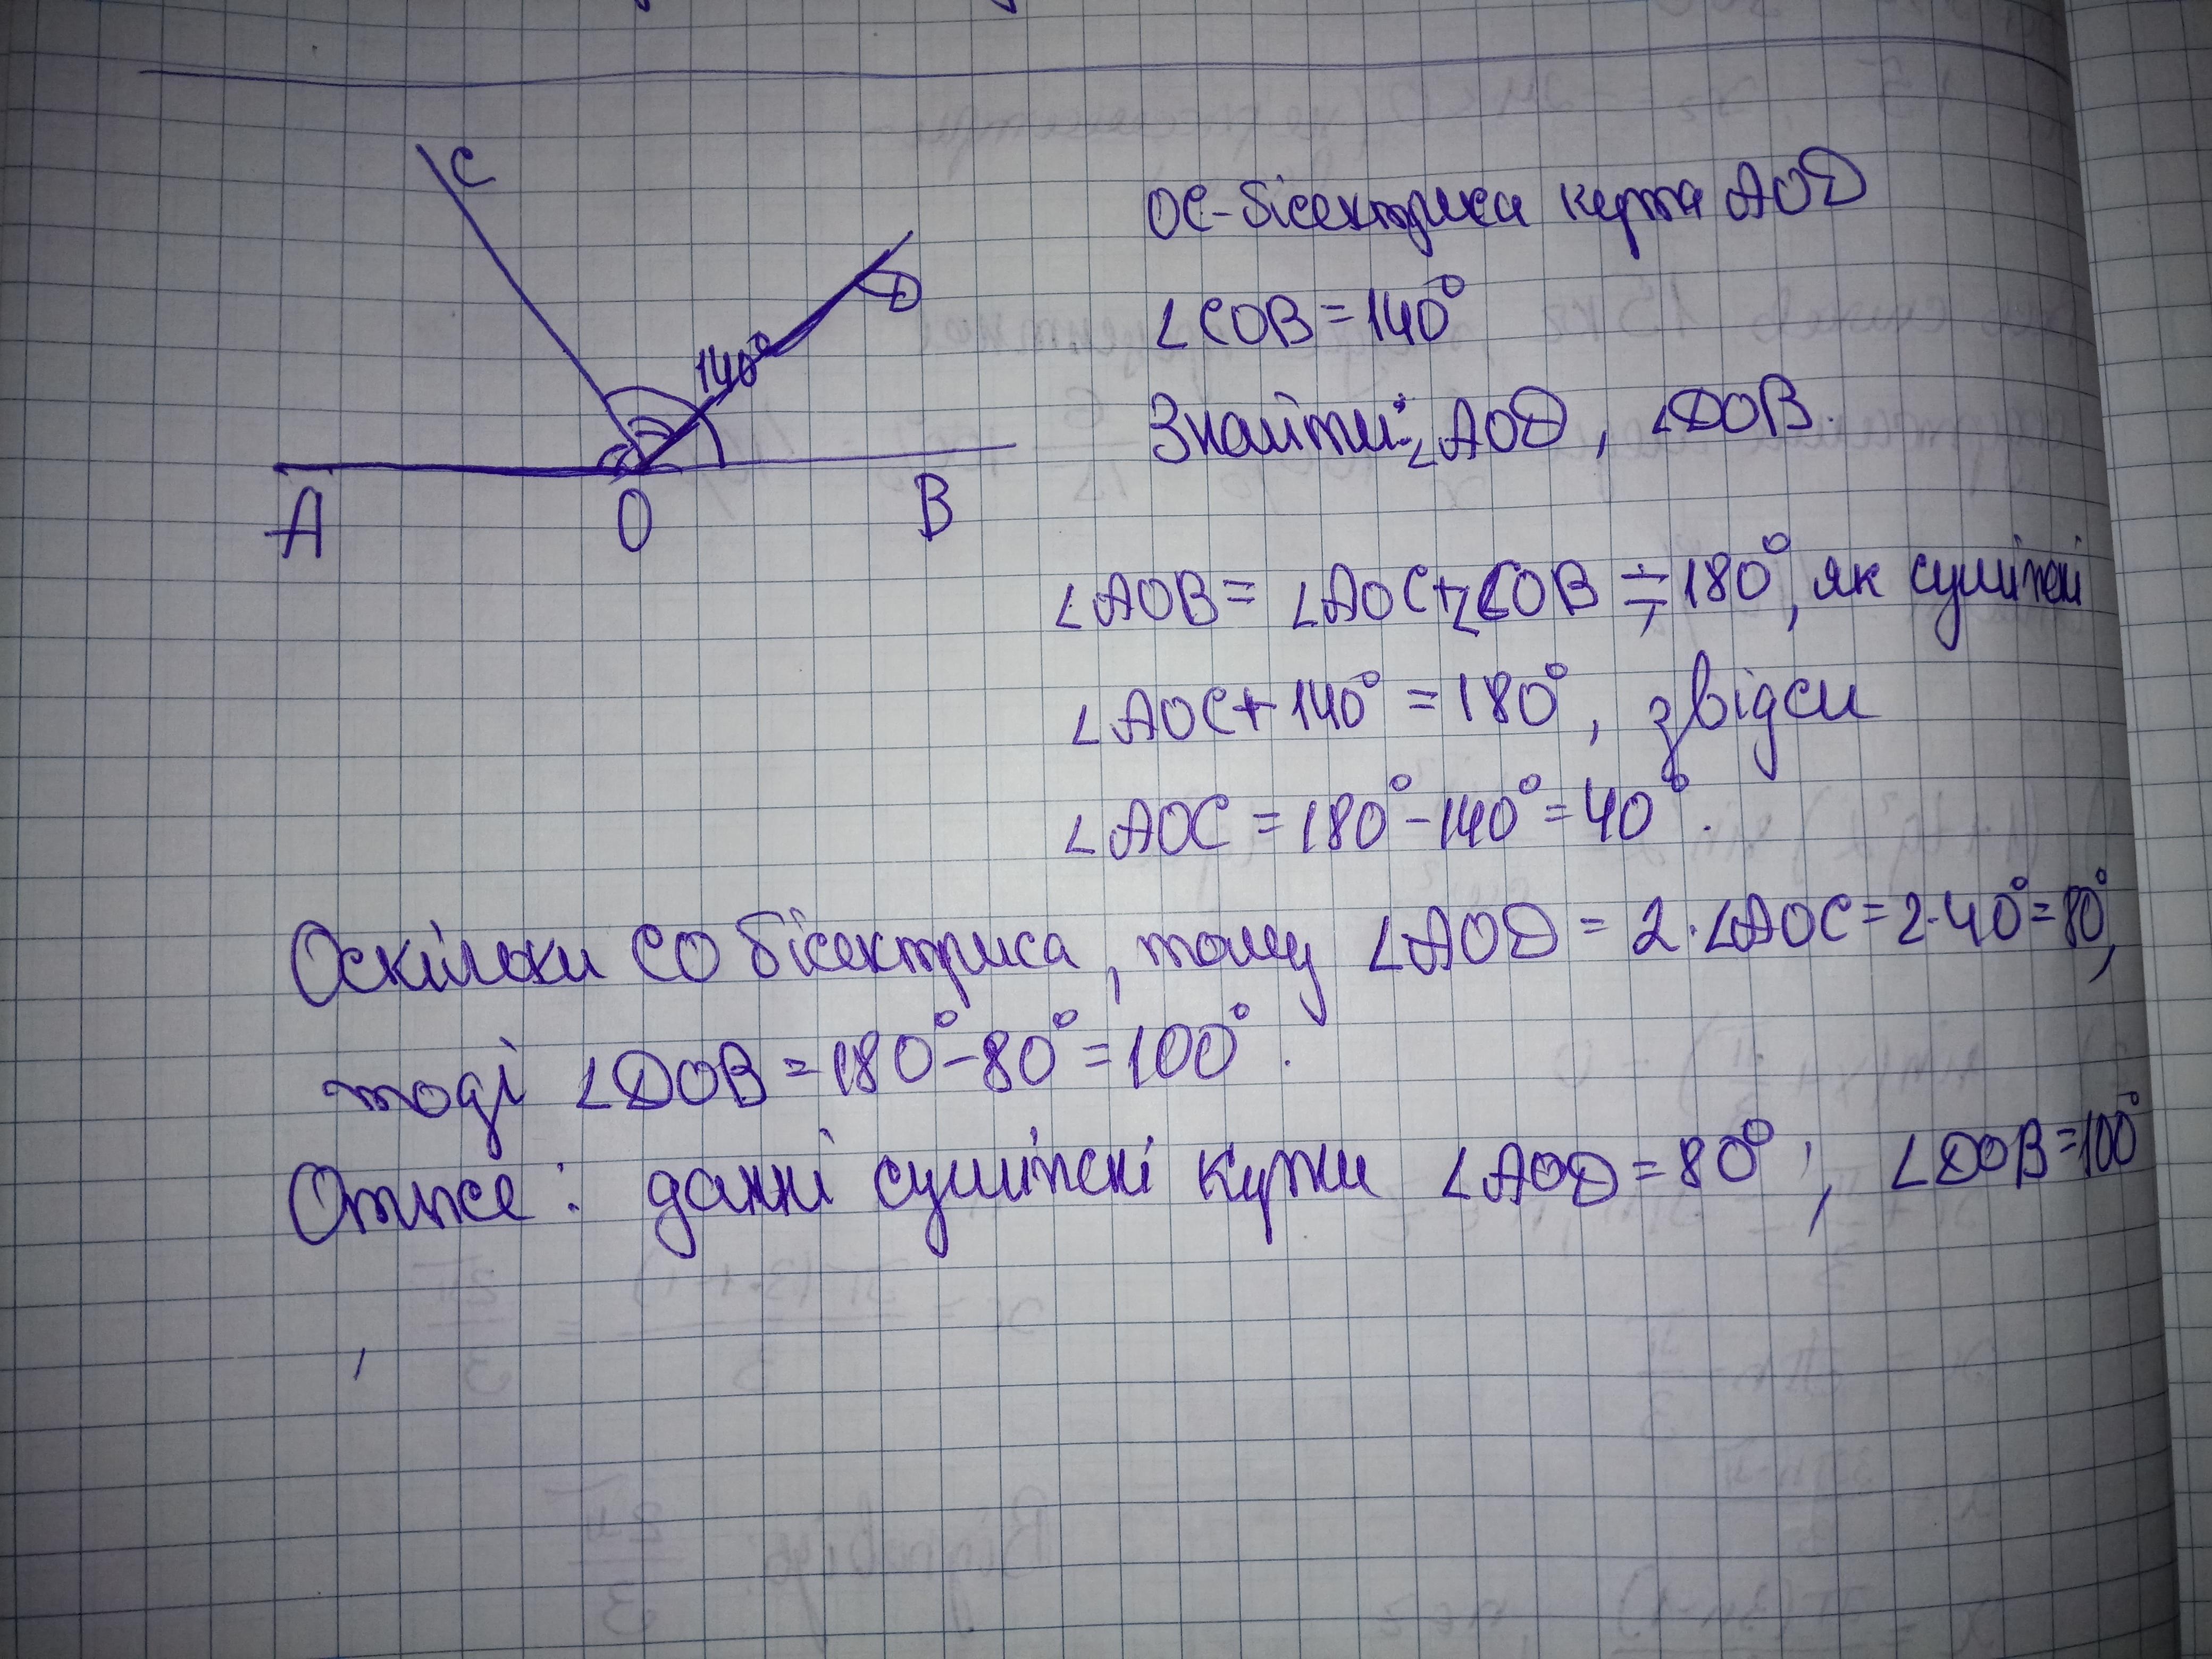 C
D
140°
A O B
OC-бісектриса кута AOD
∠COB=140°
Знайти: ∠AOD, ∠DOB.
∠AOB= ∠AOC+∠COB = 180°, як суміжні
∠AOC+140° =180°, звідси
∠AOC =180°-140°=40°.
Оскільки CO бісектриса, тому ∠AOD = 2·∠AOC=2·40°=80°,
тоді ∠DOB=180°-80°=100°.
Отже: данні суміжні кути ∠AOD=80°; ∠DOB=100°